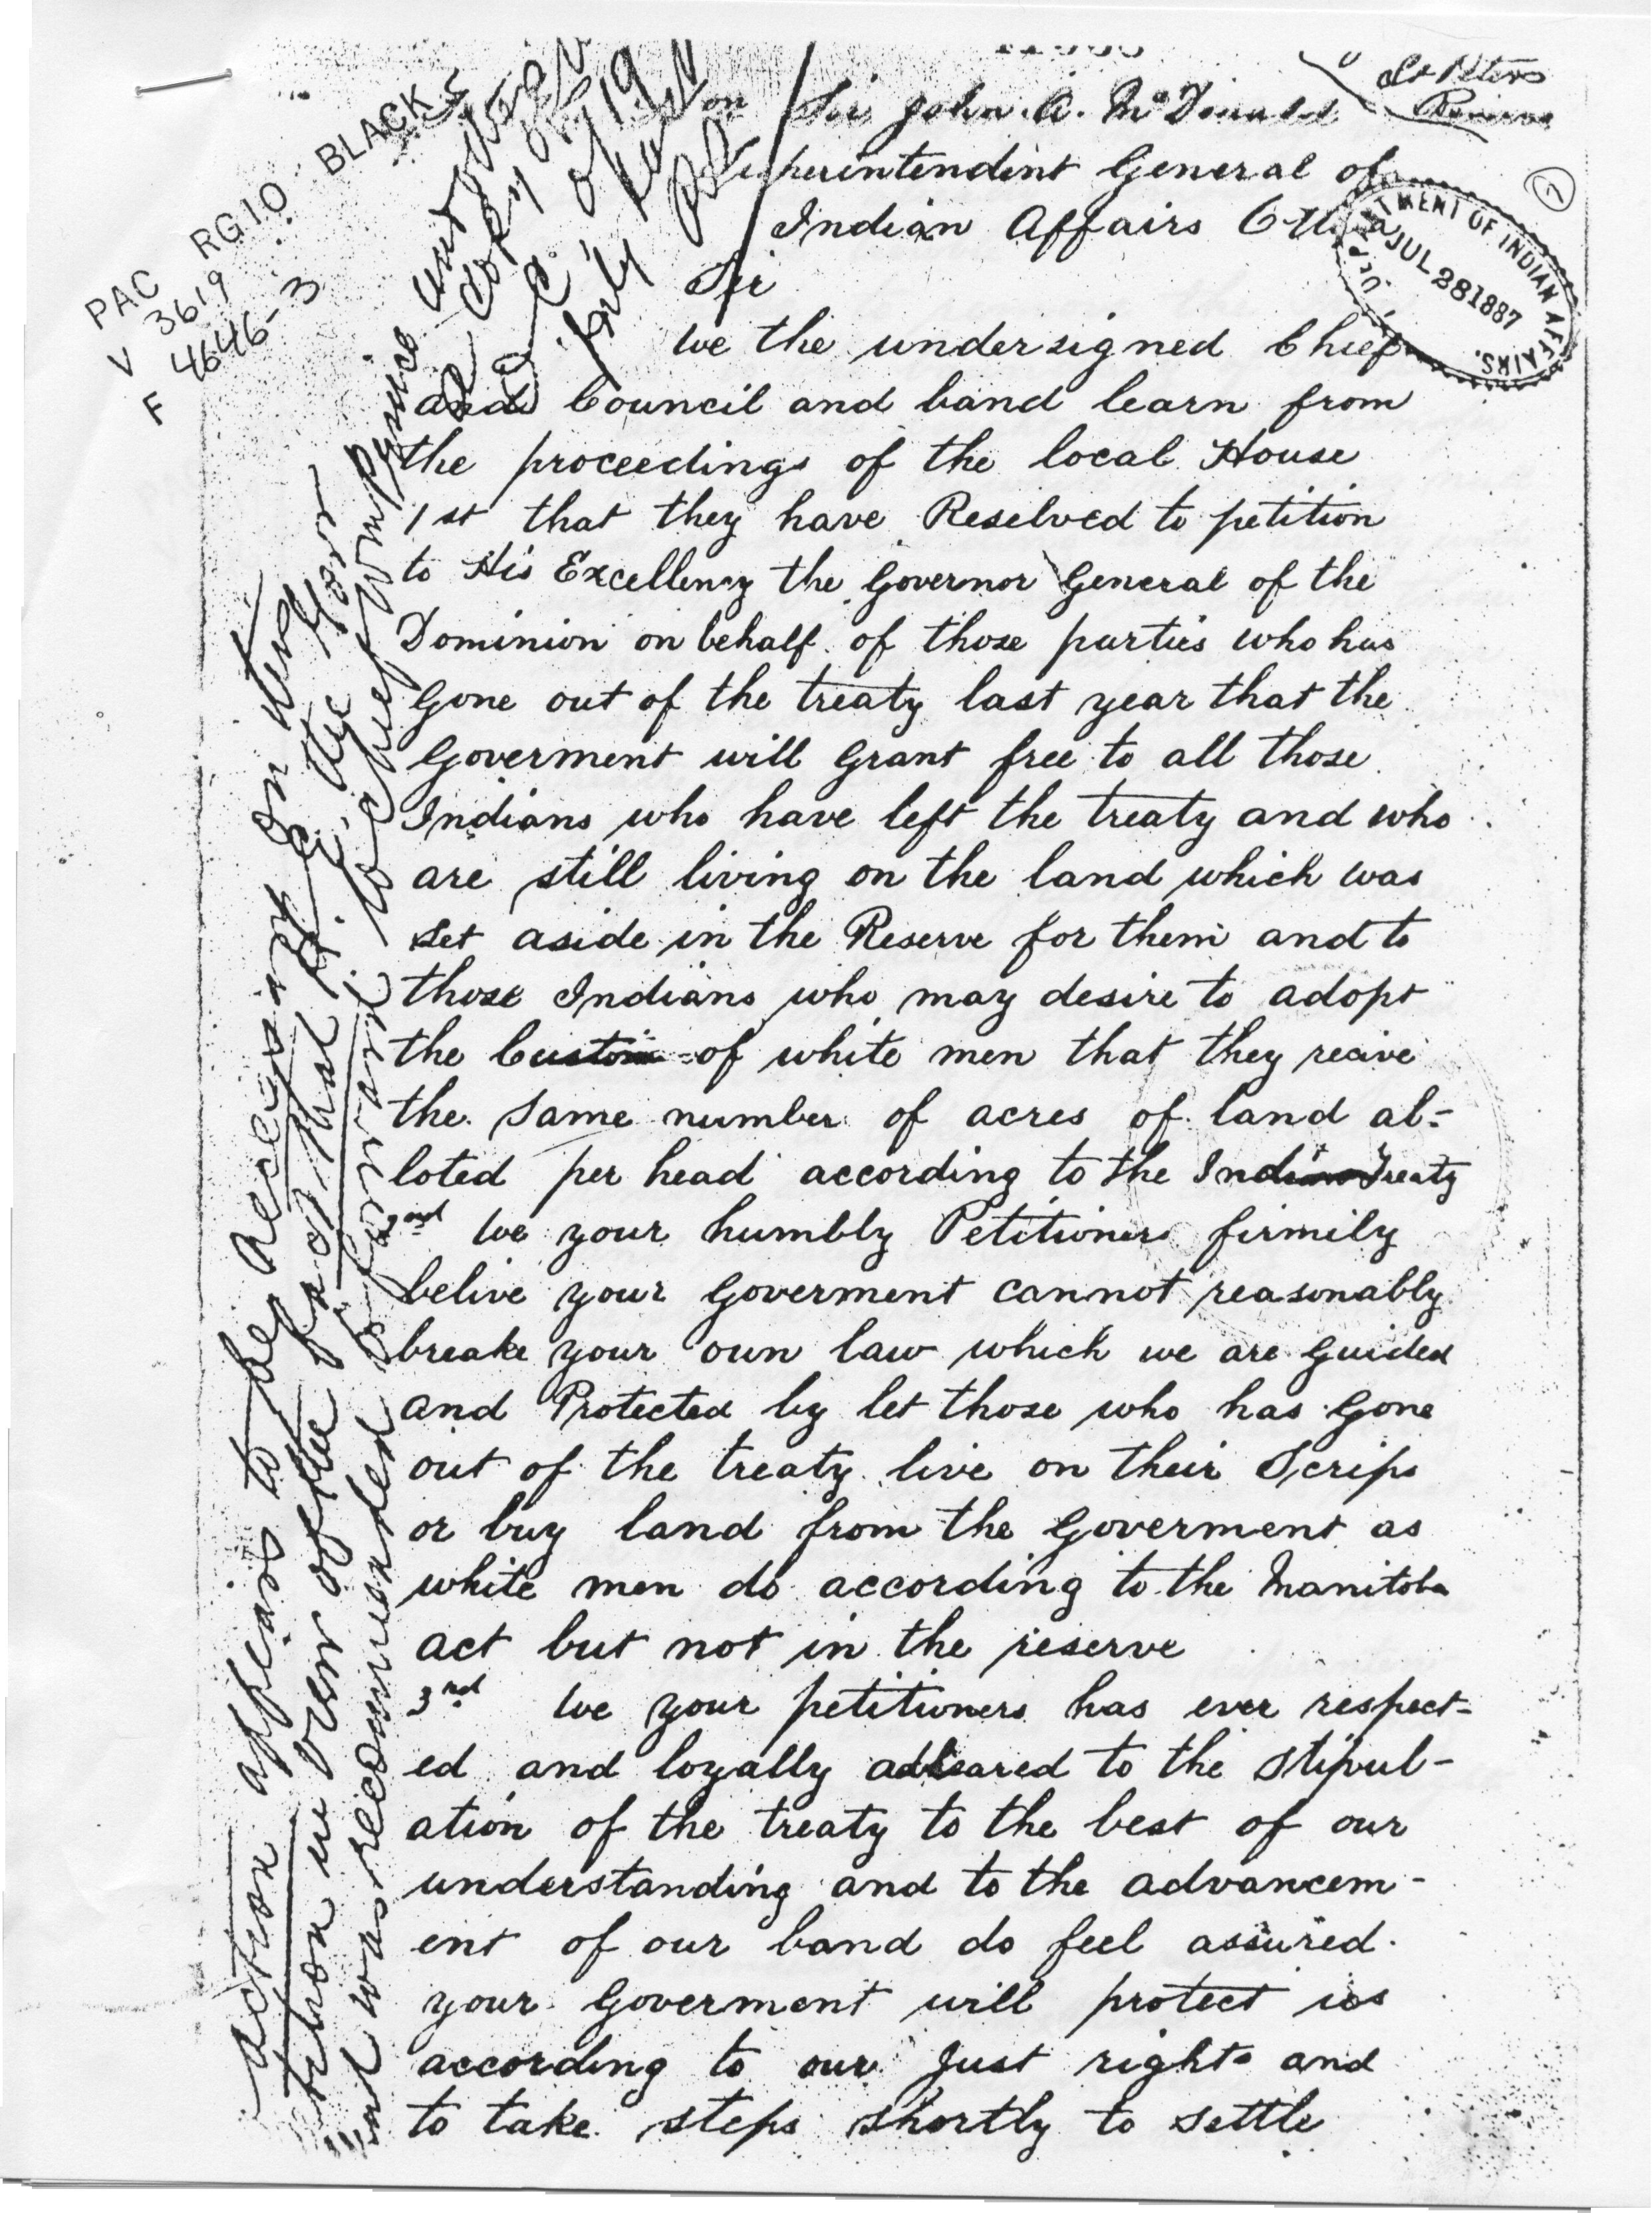 St Peters
Reserve
1
PAC RG10 BLACK
V 3619
F 4646-3
DEPARTMENT OF INDIAN AFFAIRS.
JUL 28 1887
Sir John. A. McDonald
Superintendint General of
Indian Affairs Ottawa
Sir
We the undersigned Chief
and Council and band learn from
the proceedings of the local House
1st that they have Reselved to petition
to His Excellency the Governor General of the
Dominion on behalf of those parties who has
Gone out of the treaty last year that the
Goverment will Grant free to all those
Indians who have left the treaty and who
are still living on the land which was
set aside in the Reserve for them and to
those Indians who may desire to adopt
the Custom of white men that they reaive
the same number of acres of land al=
loted per head according to the Indian Treaty
2nd We your humbly Petitioners firmily
belive your Goverment cannot reasonably
breake your own law which we are Guided
and Protected by let those who has Gone
out of the treaty live on their Scrips
or buy land from the Goverment as
white men do according to the Manitoba
act but not in the reserve
3rd We your petitioners has ever respect=
ed and loyally adheared to the stipul-
ation of the treaty to the best of our
understanding and to the advancem-
ent of our band do feel assured.
your Goverment will protect us
according to our Just rights and
to take steps shortly to settle
action appears to be necessary on this
in view of the fact that
was recommended